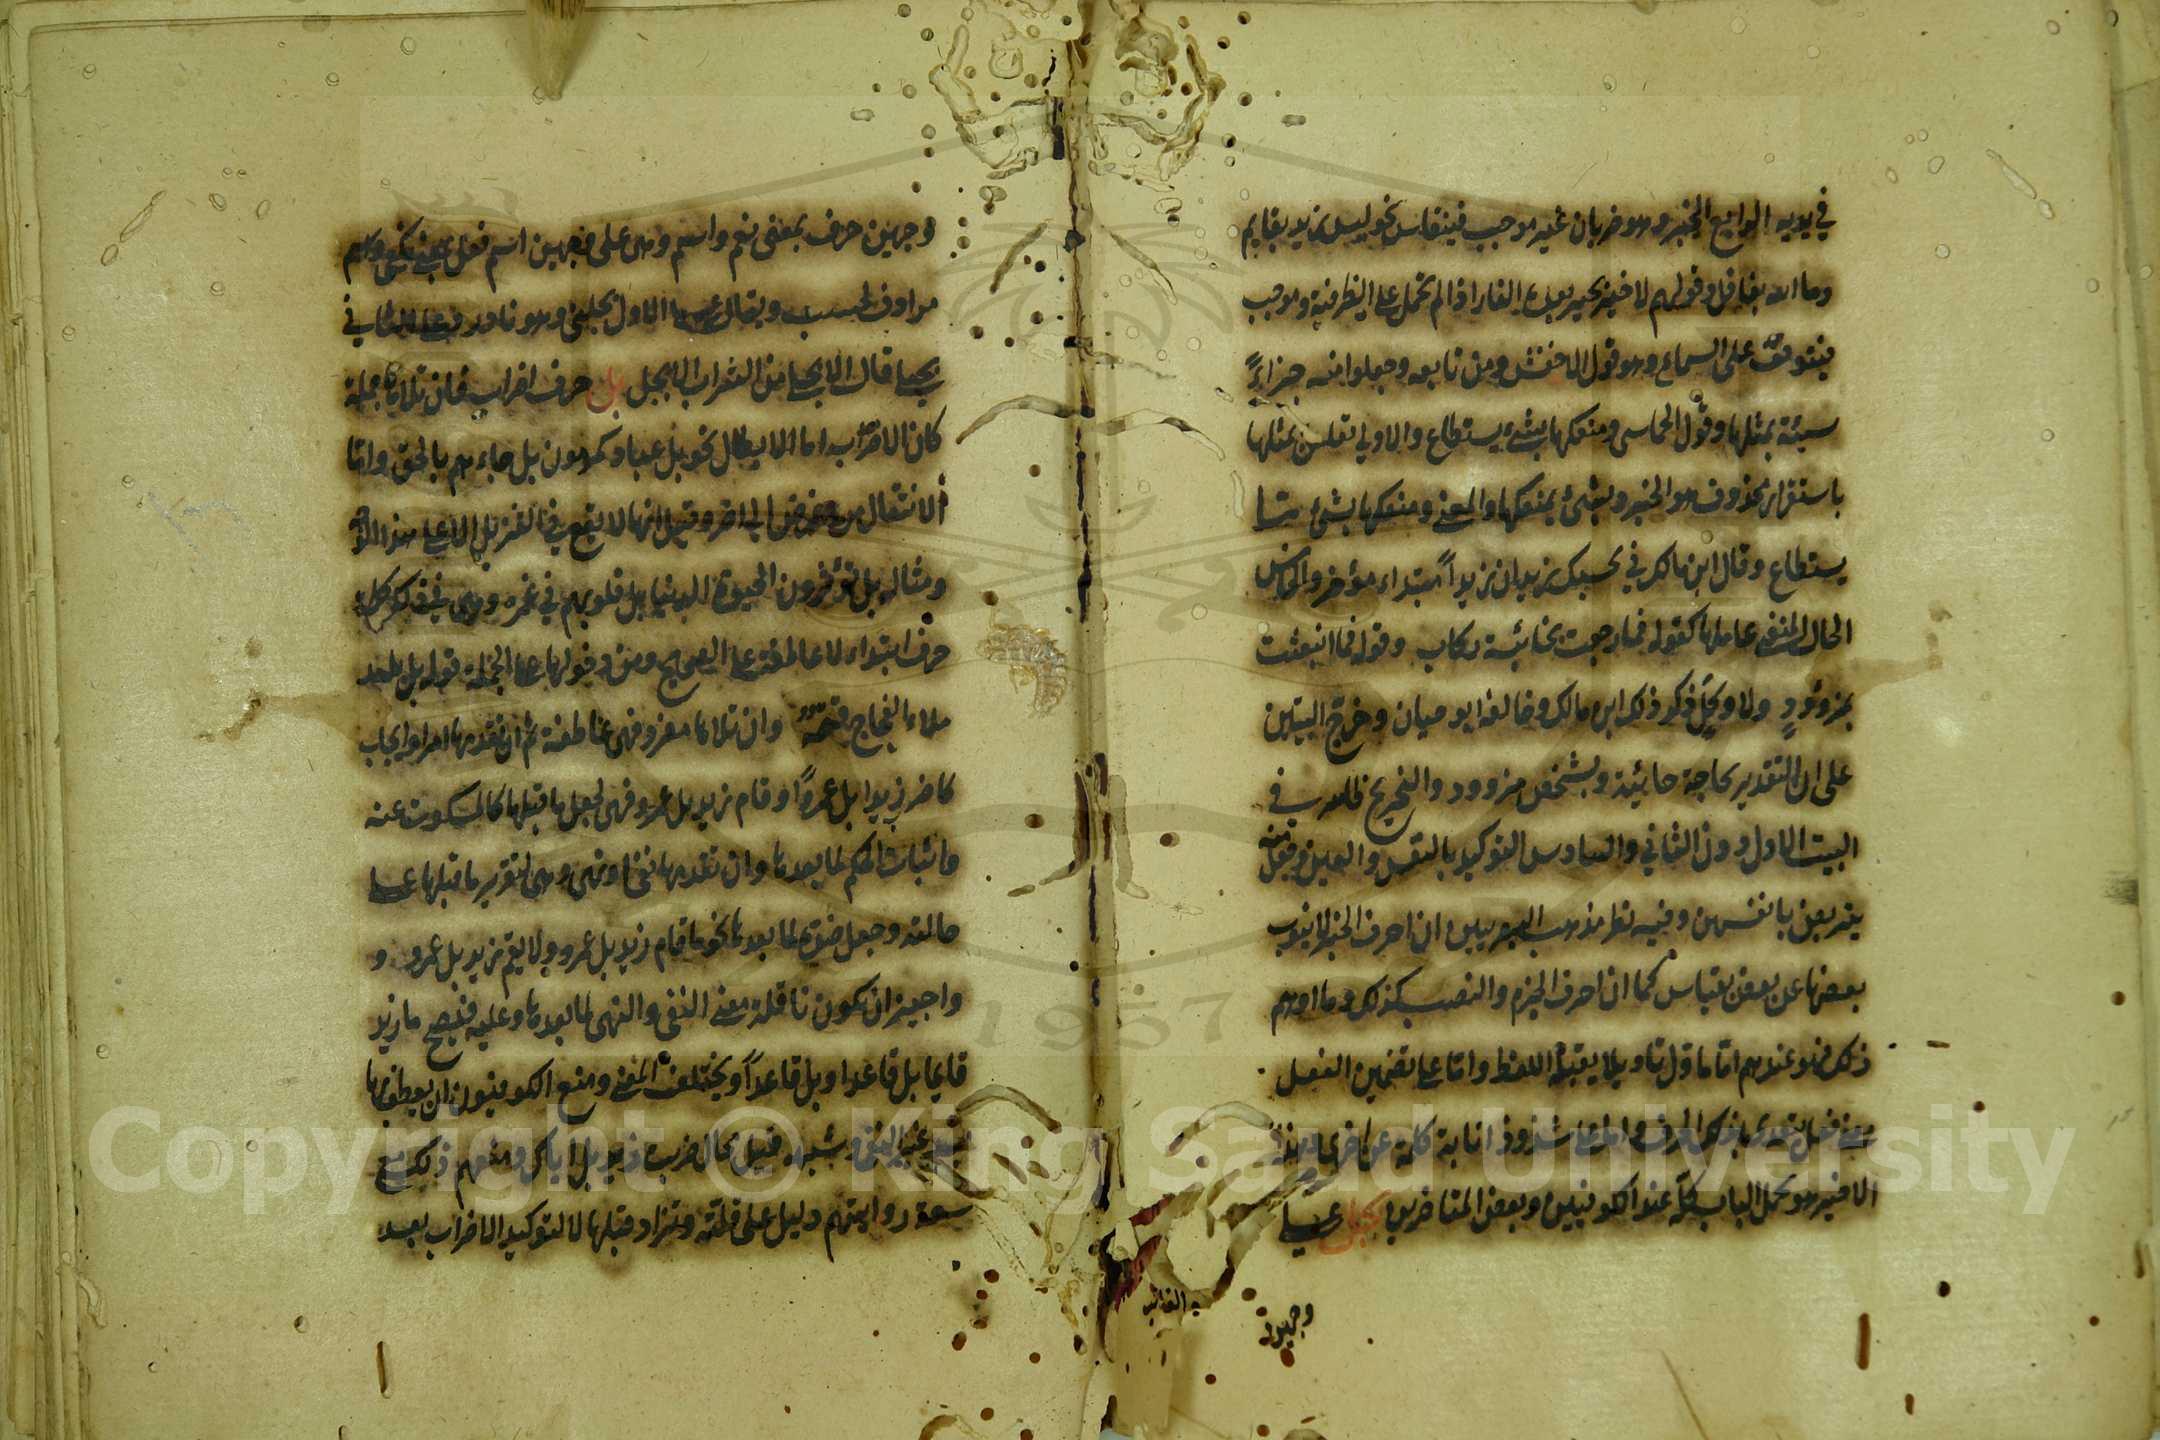 في يديه الرابع الخبر وهو ضربان غير موجب فينقاس نحو ليس زيد بقايم
وما الله بغافل وقولهم لا خير بخير بعده النار اذا لم تحمل على الظرفية وموجب
فيتوقف على السماع وهو قول الاخفش ومن تابعه وجعلوا منه جزاء
سيئة بمثلها وقول الحماسي ومنعكها بشيء يستطاع والاولى تعلق بمثلها
باستقرار محذوف هو الخبر وبشئ بمنعكها والمعنى ومنعكها بشئ ما
يستطاع وقال ابن مالك في بحسبك زيد ان زيداً مبتداء مؤخر والخامس
الحال المنفي عاملها كقوله فما رجعت بخائبة ركاب وقوله فما انبعثت
بمزؤود ولا وكل ذكر ذلك ابن مالك وخالفه ابو حيان وخرج البيتين
على ان التقدير بحاجة خائبة وبشخص مزوود والتخريج ظاهر في
البيت الاول دون الثاني والسادس التوكيد بالنفس والعين وجعل منه
يتربصن بانفسهن وفيه نظر مذهب البصريين ان احرف الجر لا ينوب
بعضها عن بعض بقياس كما ان احرف الجزم والنصب كذلك وما اوهم
ذلك فهو عندهم اما ماول تاويلا يقبله اللفظ واما على تضمين الفعل
معنى فعل يتعدى بذلك الحرف واما على شذوذ انابة كلمة عن اخرى وهذا
الاخير هو محمل الباب كله عند الكوفيين وبعض المتاخرين بجل على
وجهين
وجهين حرف بمعنى نعم واسم وهي على وجهين اسم فعل بمعنى يكفي واسم
مرادف لحسب ويقال على الاول بجلني وهو نادر وعلى الثاني
بجلي قال الا بجلي من الشراب الا بجل بل حرف اضراب فان تلاها جملة
كان الاضراب اما الابطال نحو بل عباد مكرمون بل جاءهم بالحق واما
الانتقال من غرض الى اخر وقيل انها لا تقع في التنزيل الا على هذا
ومثاله بل تؤثرون الحيوة الدنيا بل قلوبهم في غمرة وهي في ذلك كله
حرف ابتداء لا عاطفة على الصحيح ومن دخولها على الجملة قوله بل بلد
ملء الفجاج قتمه وان تلاها مفرد فهي عاطفة ثم ان تقدمها امر او ايجاب
كاضرب زيدا بل عمروًا وقام زيد بل عمرو فهي تجعل ما قبلها كالمسكوت عنه
واثبات الحكم لما بعدها وان تقدمها نفي او نهي فهي لتقرير ما قبلها على
حالته وجعل ضده لما بعدها نحو ما قام زيد بل عمرو ولا يقم زيد بل عمرو و
واجيز ان تكون ناقلة معنى النفي والنهي لما بعدها وعليه فيصح ما زيد
قايما بل قاعدا وبل قاعداً ويختلف المعنى ومنع الكوفيون ان يعطف بها
بعد غير النفي وشبهه قيل محال ضربت زيدا بل اياك ومنعهم ذلك مع
سعة روايتهم دليل على قلته وتزاد قبلها لا لتوكيد الاضراب بعد